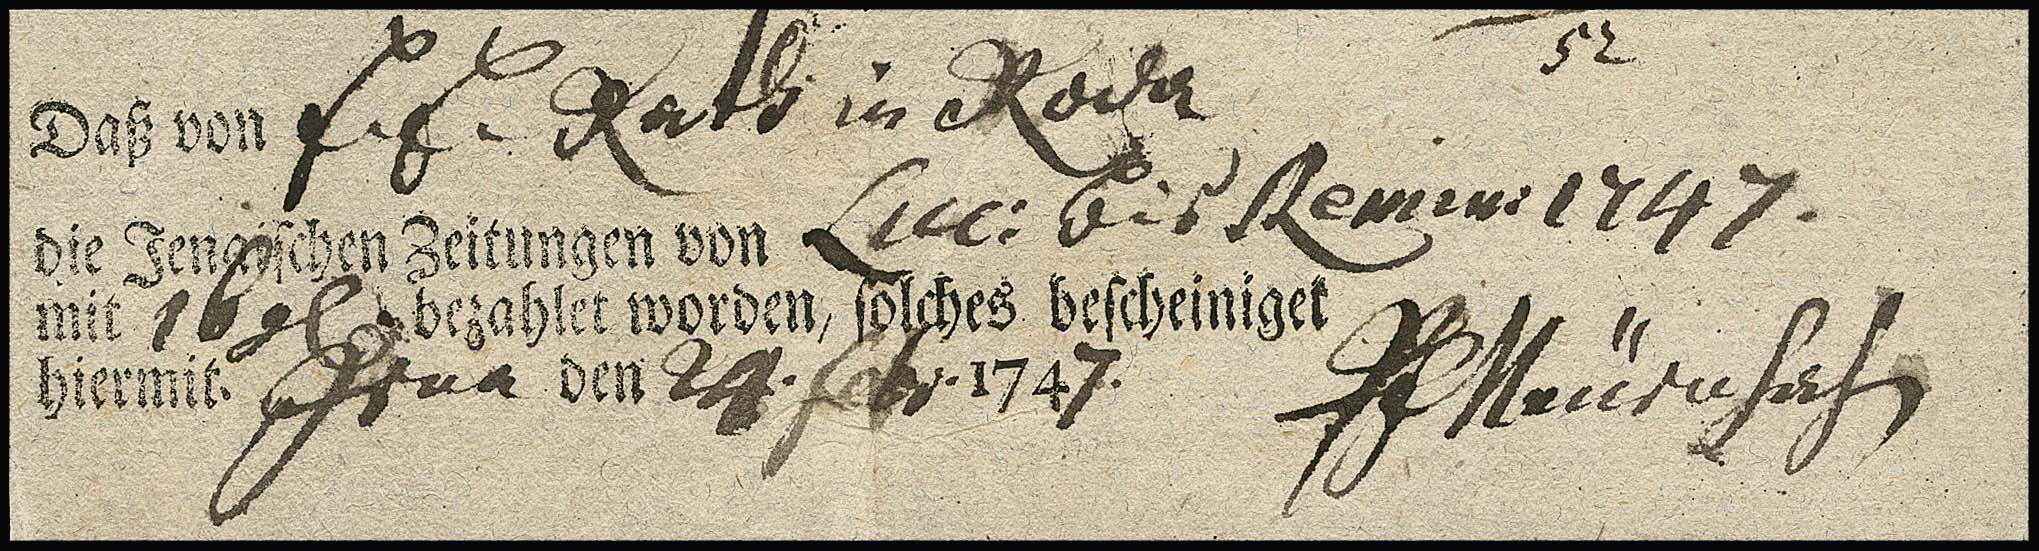 52
Daß von E. E. Rath in Roda
die Jenaischen Zeitungen von Luc: bis Remin: 1747.
mit 16 gl bezahlet worden, solches bescheiniget
hiermit. Jena den 24. Febr. 1747.